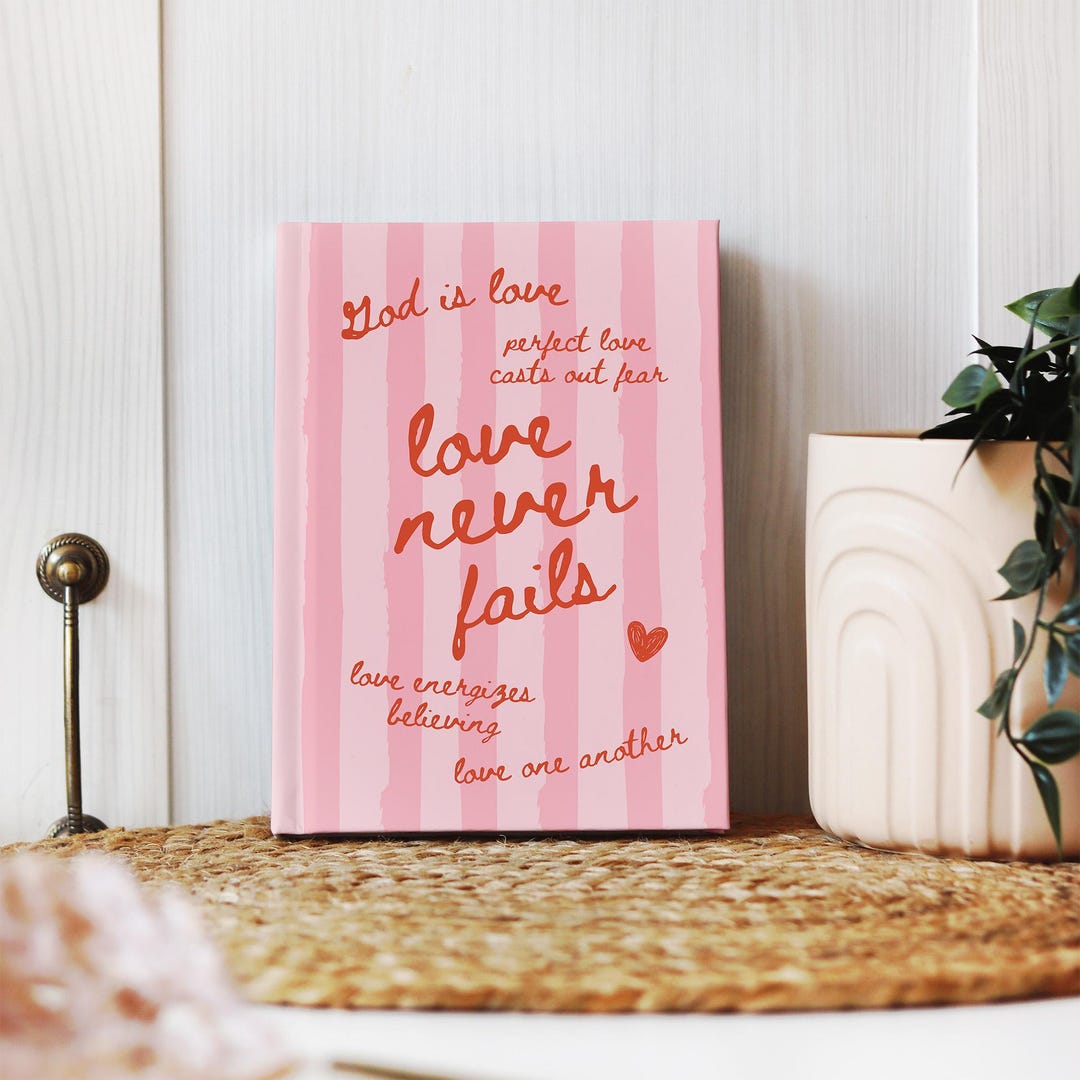 God is love
perfect love
casts out fear
love
never
fails
love energizes
believing
love one another